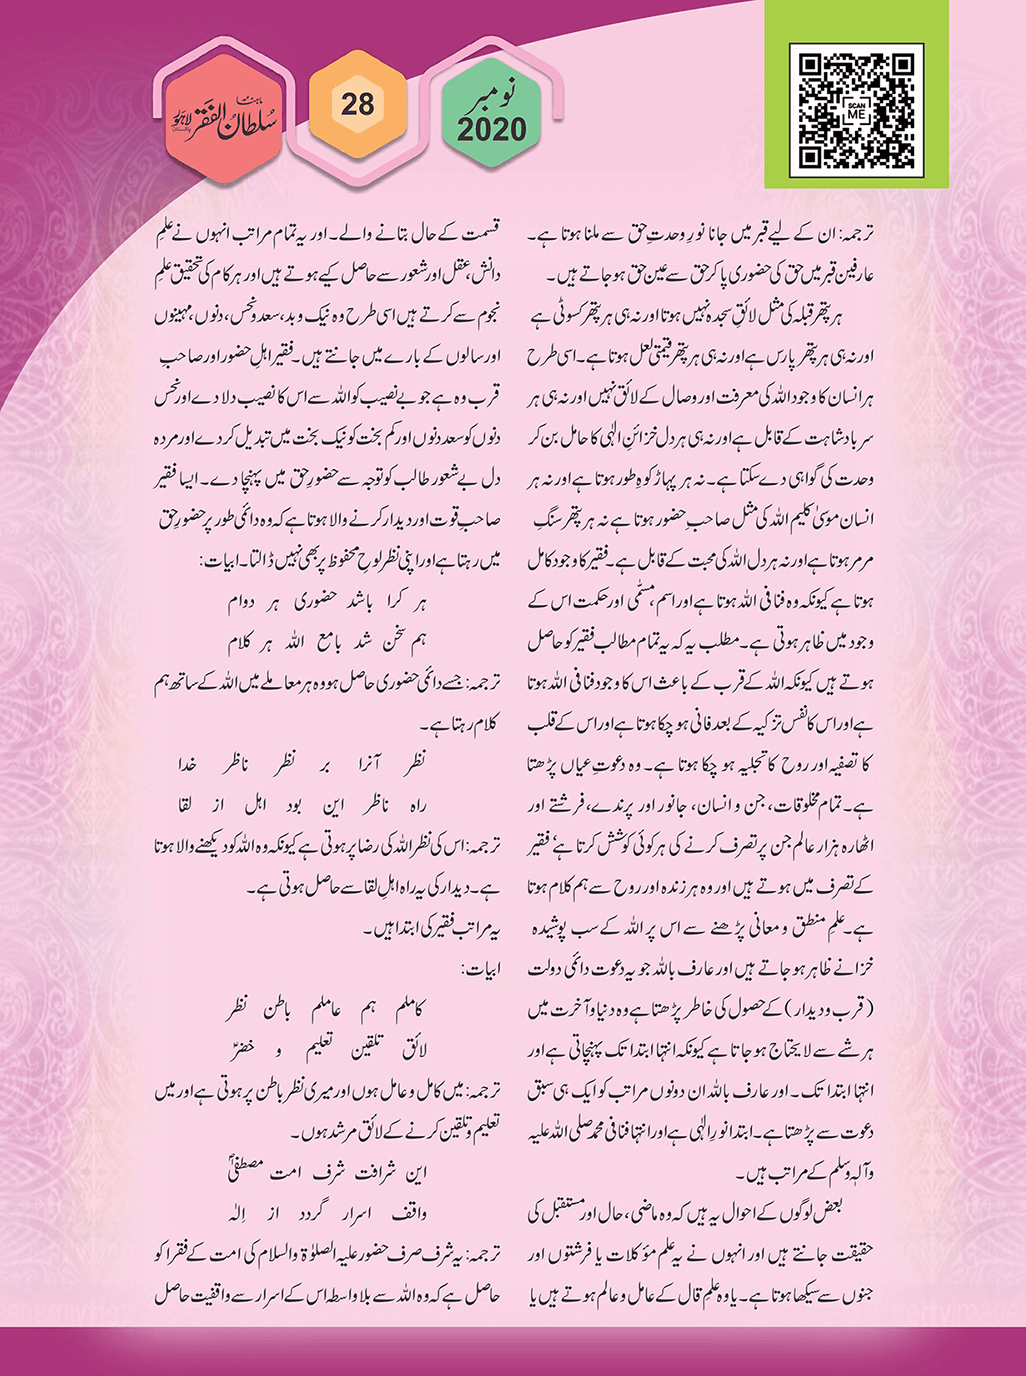 ماہنامہ سُلطانُ الفَقر لاہور
28
نومبر
2020
SCAN
ME
ترجمہ: ان کے لیے قبر میں جانا نورِ وحدتِ حق سے ملنا ہوتا ہے۔
عارفین قبر میں حق کی حضوری پا کر حق سے عین حق ہو جاتے ہیں۔
ہر پتھر قبلہ کی مثل لائقِ سجدہ نہیں ہوتا اور نہ ہی ہر پتھر کسوٹی ہے
اور نہ ہی ہر پتھر پارس ہے اور نہ ہی ہر پتھر قیمتی لعل ہوتا ہے۔ اسی طرح
ہر انسان کا وجود اللہ کی معرفت اور وصال کے لائق نہیں اور نہ ہی ہر
سر بادشاہت کے قابل ہے اور نہ ہی ہر دل خزائنِ الٰہی کا حامل بن کر
وحدت کی گواہی دے سکتا ہے۔ نہ ہر پہاڑ کوہِ طور ہوتا ہے اور نہ ہر
انسان موسیٰ کلیم اللہ کی مثل صاحبِ حضور ہوتا ہے نہ ہر پتھر سنگِ
مرمر ہوتا ہے اور نہ ہر دل اللہ کی محبت کے قابل ہے۔ فقیر کا وجود کامل
ہوتا ہے کیونکہ وہ فنا فی اللہ ہوتا ہے اور اسم، مسمّٰی اور حکمت اس کے
وجود میں ظاہر ہوتی ہے۔ مطلب یہ کہ یہ تمام مطالب فقیر کو حاصل
ہوتے ہیں کیونکہ اللہ کے قرب کے باعث اس کا وجود فنا فی اللہ ہوتا
ہے اور اس کا نفس تزکیہ کے بعد فانی ہو چکا ہوتا ہے اور اس کے قلب
کا تصفیہ اور روح کا تجلیہ ہو چکا ہوتا ہے۔ وہ دعوتِ عیاں پڑھتا
ہے۔ تمام مخلوقات، جن و انسان، جانور اور پرندے، فرشتے اور
اٹھارہ ہزار عالم جن پر تصرف کرنے کی ہر کوئی کوشش کرتا ہے‘ فقیر
کے تصرف میں ہوتے ہیں اور وہ ہر زندہ اور روح سے ہم کلام ہوتا
ہے۔ علمِ منطق و معانی پڑھنے سے اس پر اللہ کے سب پوشیدہ
خزانے ظاہر ہو جاتے ہیں اور عارف باللہ جو یہ دعوت دائمی دولت
(قرب و دیدار) کے حصول کی خاطر پڑھتا ہے وہ دنیا و آخرت میں
ہر شے سے لایحتاج ہو جاتا ہے کیونکہ انتہا ابتدا تک پہنچاتی ہے اور
انتہا ابتدا تک۔ اور عارف باللہ ان دونوں مراتب کو ایک ہی سبق
دعوت سے پڑھتا ہے۔ ابتدا نورِ الٰہی ہے اور انتہا فنا فی محمد صلی اللہ علیہ
وآلہٖ وسلم کے مراتب ہیں۔
بعض لوگوں کے احوال یہ ہیں کہ وہ ماضی، حال اور مستقبل کی
حقیقت جانتے ہیں اور انہوں نے یہ علم مؤکلات یا فرشتوں اور
جنوں سے سیکھا ہوتا ہے۔ یا وہ علمِ قال کے عامل و عالم ہوتے ہیں یا
قسمت کے حال بتانے والے۔ اور یہ تمام مراتب انہوں نے علمِ
دانش، عقل اور شعور سے حاصل کیے ہوتے ہیں اور ہر کام کی تحقیق علمِ
نجوم سے کرتے ہیں اسی طرح وہ نیک و بد، سعد و نحس، دنوں، مہینوں
اور سالوں کے بارے میں جانتے ہیں۔ فقیر اہلِ حضور اور صاحبِ
قرب وہ ہے جو بے نصیب کو اللہ سے اس کا نصیب دلا دے اور نحس
دنوں کو سعد دنوں اور کم بخت کو نیک بخت میں تبدیل کر دے اور مردہ
دل بے شعور طالب کو توجہ سے حضورِ حق میں پہنچا دے۔ ایسا فقیر
صاحبِ قوت اور دیدار کرنے والا ہوتا ہے کہ وہ دائمی طور پر حضورِ حق
میں رہتا ہے اور اپنی نظر لوحِ محفوظ پر بھی نہیں ڈالتا۔ ابیات:
ہر کرا باشد حضوری ہر دوام
ہم سخن شد بامع اللہ ہر کلام
ترجمہ: جسے دائمی حضوری حاصل ہو وہ ہر معاملے میں اللہ کے ساتھ ہم
کلام رہتا ہے۔
نظر آنرا بر نظر ناظر خدا
راہ ناظر این بود اہل از لقا
ترجمہ: اس کی نظر اللہ کی رضا پر ہوتی ہے کیونکہ وہ اللہ کو دیکھنے والا ہوتا
ہے۔ دیدار کی یہ راہ اہلِ لقا سے حاصل ہوتی ہے۔
یہ مراتب فقیر کی ابتدا ہیں۔
ابیات:
کاملم ہم عاملم باطن نظر
لائق تلقین تعلیم و خضرؑ
ترجمہ: میں کامل و عامل ہوں اور میری نظر باطن پر ہوتی ہے اور میں
تعلیم و تلقین کرنے کے لائق مرشد ہوں۔
این شرافت شرف امت مصطفیؐ
واقف اسرار گردد از اِلٰہ
ترجمہ: یہ شرف صرف حضور علیہ الصلوٰۃ والسلام کی امت کے فقرا کو
حاصل ہے کہ وہ اللہ سے بلاواسطہ اس کے اسرار سے واقفیت حاصل